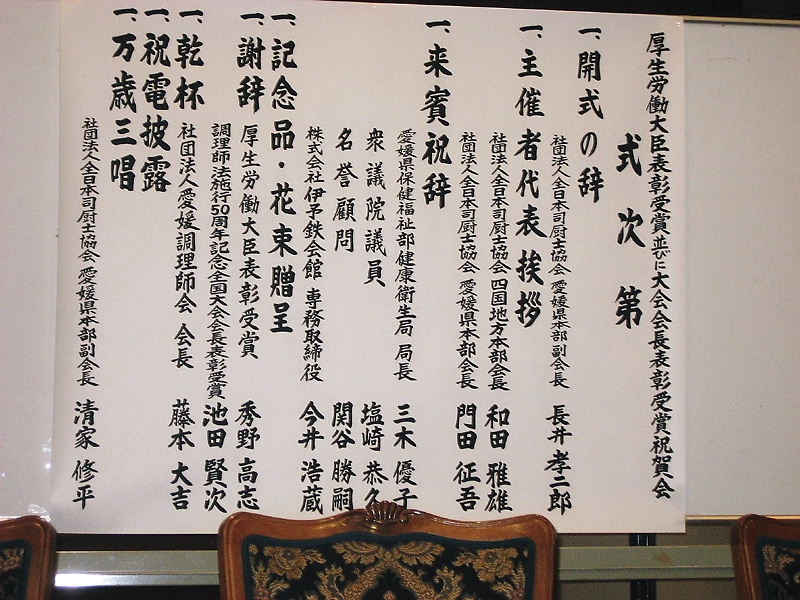 厚生労働大臣表彰受賞並びに大会会長表彰受賞祝賀会
式次第
一、開式の辞
社団法人全日本司厨士協会 愛媛県本部副会長 長井 孝二郎
一、主催者代表挨拶
社団法人全日本司厨士協会 四国地方本部会長 和田 雅雄
社団法人全日本司厨士協会 愛媛県本部会長 門田 征吾
一、来賓祝辞
愛媛県保健福祉部健康衛生局 局長 三木 優子
衆議院議員 塩崎 恭久
名誉顧問 関谷 勝嗣
株式会社 伊予鉄会館 専務取締役 今井 浩蔵
一、記念品・花束贈呈
一、謝辞 厚生労働大臣表彰受賞 秀野 高志
調理師法施行50周年記念全国大会会長表彰受賞 池田 賢次
一、乾杯 社団法人愛媛調理師会 会長 藤本 大吉
一、祝電披露
一、万歳三唱
社団法人全日本司厨士協会 愛媛県本部副会長 清家 修平